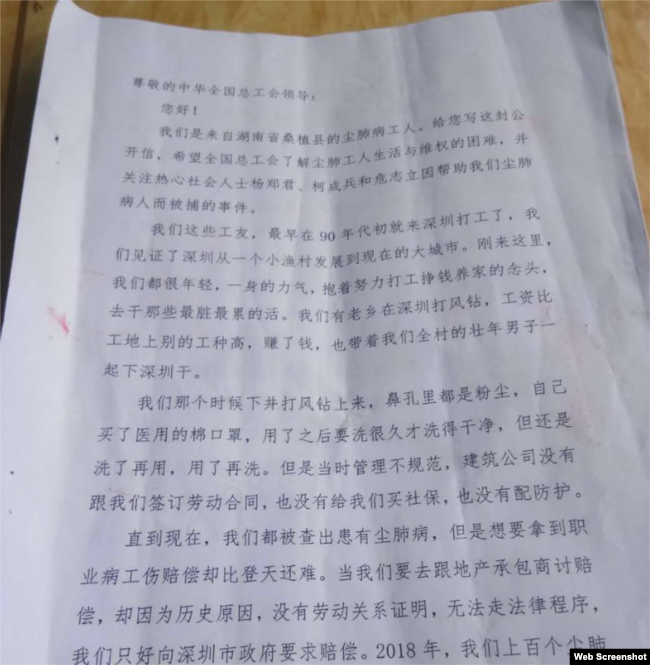 尊敬的中华全国总工会领导：
您好！
我们是来自湖南省桑植县的尘肺病工人。给您写这封公
开信，希望全国总工会了解尘肺工人生活与维权的困难，并
关注热心社会人士杨郑君、柯成兵和危志立因帮助我们尘肺
病人而被捕的事件。
我们这些工友，最早在 90 年代初就来深圳打工了，我
们见证了深圳从一个小渔村发展到现在的大城市。刚来这里，
我们都很年轻，一身的力气，抱着努力打工挣钱养家的念头，
去干那些最脏最累的活。我们有老乡在深圳打风钻，工资比
工地上别的工种高，赚了钱，也带着我们全村的壮年男子一
起下深圳干。
我们那个时候下井打风钻上来，鼻孔里都是粉尘，自己
买了医用的棉口罩，用了之后要洗很久才洗得干净，但还是
洗了再用，用了再洗。但是当时管理不规范，建筑公司没有
跟我们签订劳动合同，也没有给我们买社保，也没有配防护。
直到现在，我们都被查出患有尘肺病，但是想要拿到职
业病工伤赔偿却比登天还难。当我们要去跟地产承包商讨赔
偿，却因为历史原因，没有劳动关系证明，无法走法律程序，
我们只好向深圳市政府要求赔偿。2018 年，我们上百个尘肺
Web Screenshot